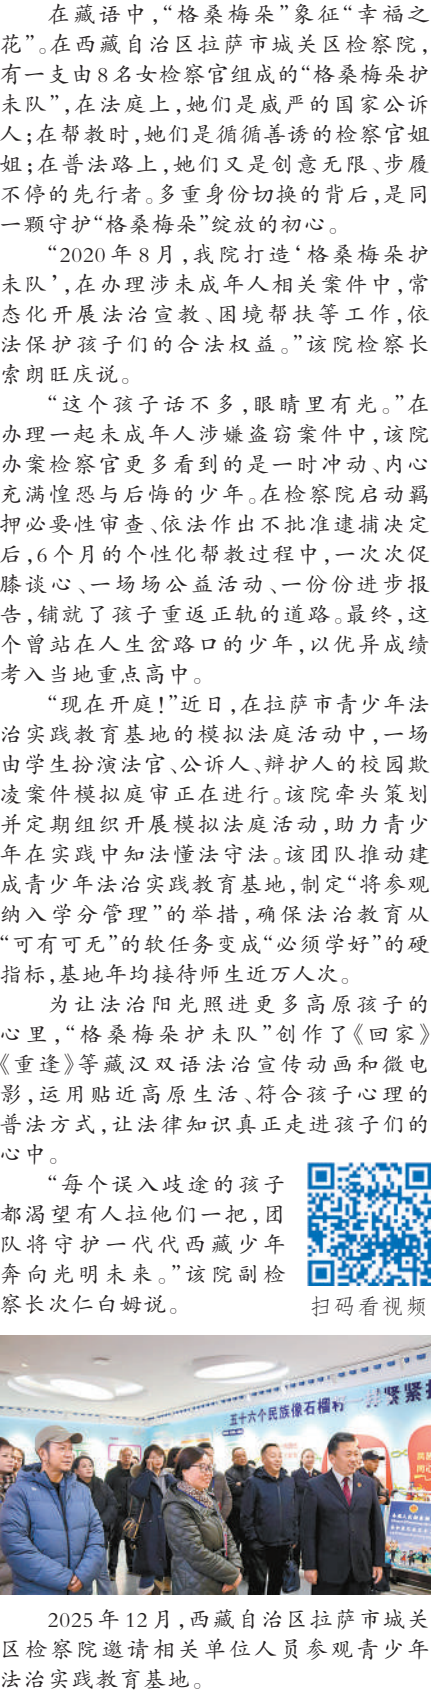 在藏语中，“格桑梅朵”象征“幸福之
花”。在西藏自治区拉萨市城关区检察院，
有一支由8名女检察官组成的“格桑梅朵护
未队”，在法庭上，她们是威严的国家公诉
人；在帮教时，她们是循循善诱的检察官姐
姐；在普法路上，她们又是创意无限、步履
不停的先行者。多重身份切换的背后，是同
一颗守护“格桑梅朵”绽放的初心。
“2020年8月，我院打造‘格桑梅朵护
未队’，在办理涉未成年人相关案件中，常
态化开展法治宣教、困境帮扶等工作，依
法保护孩子们的合法权益。”该院检察长
索朗旺庆说。
“这个孩子话不多，眼睛里有光。”在
办理一起未成年人涉嫌盗窃案件中，该院
办案检察官更多看到的是一时冲动、内心
充满惶恐与后悔的少年。在检察院启动羁
押必要性审查、依法作出不批准逮捕决定
后，6个月的个性化帮教过程中，一次次促
膝谈心、一场场公益活动、一份份进步报
告，铺就了孩子重返正轨的道路。最终，这
个曾站在人生岔路口的少年，以优异成绩
考入当地重点高中。
“现在开庭！”近日，在拉萨市青少年法
治实践教育基地的模拟法庭活动中，一场
由学生扮演法官、公诉人、辩护人的校园欺
凌案件模拟庭审正在进行。该院牵头策划
并定期组织开展模拟法庭活动，助力青少
年在实践中知法懂法守法。该团队推动建
成青少年法治实践教育基地，制定“将参观
纳入学分管理”的举措，确保法治教育从
“可有可无”的软任务变成“必须学好”的硬
指标，基地年均接待师生近万人次。
为让法治阳光照进更多高原孩子的
心里，“格桑梅朵护未队”创作了《回家》
《重逢》等藏汉双语法治宣传动画和微电
影，运用贴近高原生活、符合孩子心理的
普法方式，让法律知识真正走进孩子们的
心中。
“每个误入歧途的孩子
都渴望有人拉他们一把，团
队将守护一代代西藏少年
奔向光明未来。”该院副检
察长次仁白姆说。
扫码看视频
五十六个民族像石榴籽一样紧紧抱
2025年12月，西藏自治区拉萨市城关
区检察院邀请相关单位人员参观青少年
法治实践教育基地。